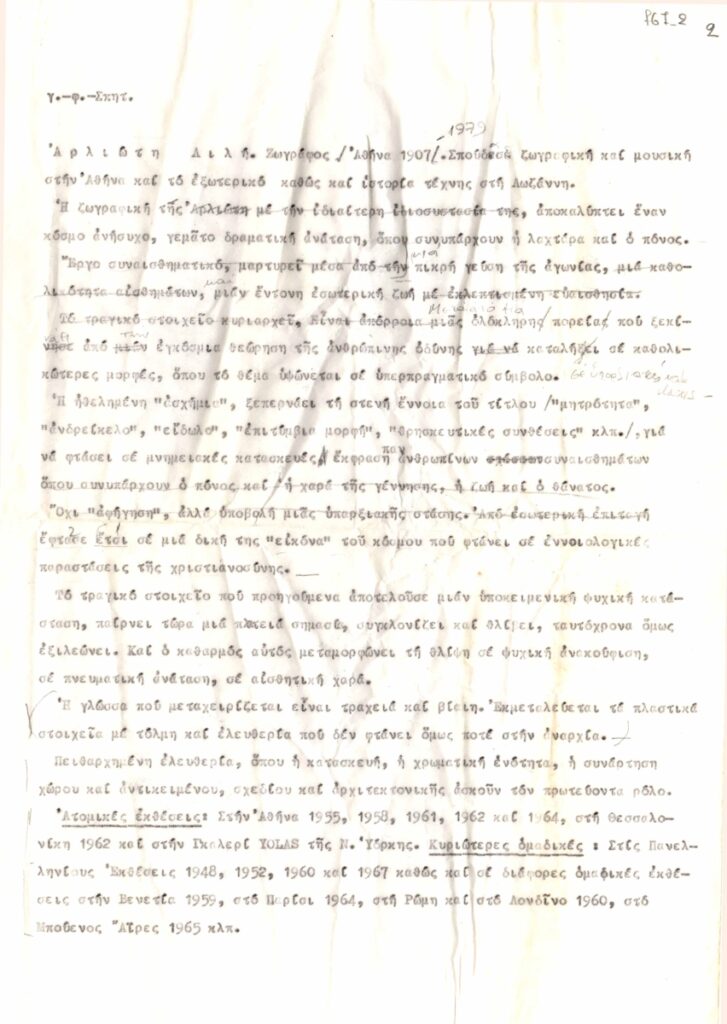 PGI_2 2
γ.-φ.-Σκητ.
1979
Ἀρλιώτη Λιλή. Ζωγράφος / Ἀθήνα 1907/. Σπούδασε ζωγραφική καί μουσική
στήν Ἀθήνα καί τό ἐξωτερικό καθώς καί ἱστορία τέχνης στή Λωζάννη.
Ἡ ζωγραφική τῆς Ἀρλιώτη μέ τήν ἰδιαίτερη ἰδιοσυστασία της, ἀποκαλύπτει ἕναν
κόσμο ἀνήσυχο, γεμᾶτο δραματική ἀνάταση, ὅπου συνυπάρχουν ἡ λαχτάρα καί ὁ πόνος.
μιά
Ἔργο συναισθηματικό, μαρτυρεῖ μέσα ἀπό τήν πικρή γεύση τῆς ἀγωνίας, μιά καθο-
λικότητα αἰσθημάτων, μιάν ἔντονη ἐσωτερική ζωή μέ ἐκλεπτισμένη εὐαισθησία.
Τό τραγικό στοιχεῖο κυριαρχεῖ. Εἶναι ἀπόρροια μιᾶς ὁλόκληρης πορείας πού ξεκί-
νησε ἀπό μιάν ἐγκόσμια θεώρηση τῆς ἀνθρώπινης ὀδύνης γιά νά καταλήξει σέ καθολι-
κώτερες μορφές, ὅπου τό θέμα ὑψώνεται σέ ὑπερπραγματικό σύμβολο.
Ἡ ἠθελημένη "ἀσχήμια", ξεπερνάει τή στενή ἔννοια τοῦ τίτλου /"μητρότητα",
"ἀνδρείκελο", "εἴδωλο", "ἐπιτύμβια μορφή", "θρησκευτικές συνθέσεις" κλπ./, γιά
νά φτάσει σέ μνημειακές κατασκευές, ἔκφραση ἀνθρωπίνων σχέσεων συναισθημάτων
ὅπου συνυπάρχουν ὁ πόνος καί ἡ χαρά τῆς γέννησης, ἡ ζωή καί ὁ θάνατος.
Ὄχι "ἀφήγηση", ἀλλά ὑποβολή μιᾶς ὑπαρξιακῆς στάσης. Ἀπό ἐσωτερική ἐπιταγή
ἔφτασε ἔτσι σέ μιά δική της "εἰκόνα" τοῦ κόσμου πού φτάνει σέ ἐννοιολογικές
παραστάσεις τῆς χριστιανοσύνης.
Τό τραγικό στοιχεῖο πού προηγούμενα ἀποτελοῦσε μιάν ὑποκειμενική ψυχική κατά-
σταση, παίρνει τώρα μιά πλατειά σημασία, συγκλονίζει καί θλίβει, ταυτόχρονα ὅμως
ἐξιλεώνει. Καί ὁ καθαρμός αὐτός μεταμορφώνει τή θλίψη σέ ψυχική ἀνακούφιση,
σέ πνευματική ἀνάταση, σέ αἰσθητική χαρά.
Ἡ γλώσσα πού μεταχειρίζεται εἶναι τραχειά καί βίαιη. Ἐκμεταλεύεται τά πλαστικά
στοιχεῖα μέ τόλμη καί ἐλευθερία πού δέν φτάνει ὅμως ποτέ στήν ἀναρχία.
Πειθαρχημένη ἐλευθερία, ὅπου ἡ κατασκευή, ἡ χρωματική ἑνότητα, ἡ συνάρτηση
χώρου καί ἀντικειμένου, σχεδίου καί ἀρχιτεκτονικῆς ἀσκοῦν τόν πρωτεύοντα ρόλο.
Ἀτομικές ἐκθέσεις: Στήν Ἀθήνα 1955, 1958, 1961, 1962 καί 1964, στή Θεσσαλο-
νίκη 1962 καί στήν Γκαλερί YOLAS τῆς Ν. Ὑόρκης. Κυριώτερες ὁμαδικές : Στίς Πανελ-
ληνίους Ἐκθέσεις 1948, 1952, 1960 καί 1967 καθώς καί σέ διάφορες ὁμαδικές ἐκθέ-
σεις στήν Βενετία 1959, στό Παρίσι 1964, στή Ρώμη καί στό Λονδῖνο 1960, στό
Μπουένος Ἄϊρες 1965 κλπ.